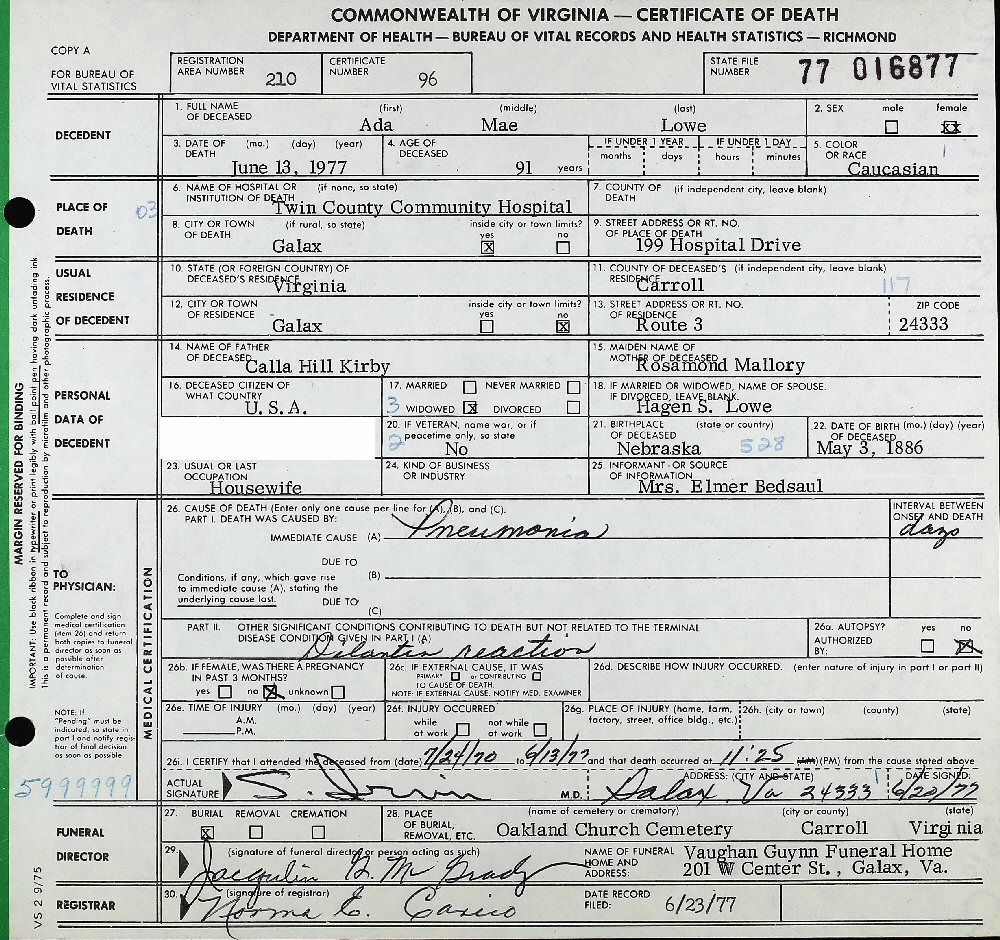 COMMONWEALTH OF VIRGINIA — CERTIFICATE OF DEATH
DEPARTMENT OF HEALTH — BUREAU OF VITAL RECORDS AND HEALTH STATISTICS — RICHMOND
COPY A
FOR BUREAU OF VITAL STATISTICS
REGISTRATION AREA NUMBER 210
CERTIFICATE NUMBER 96
STATE FILE NUMBER 77 016877
DECEDENT
1. FULL NAME OF DECEASED (first) (middle) (last)
Ada Mae Lowe
2. SEX male female
xx
3. DATE OF DEATH (mo.) (day) (year)
June 13, 1977
4. AGE OF DECEASED
91 years
IF UNDER 1 YEAR months days
IF UNDER 1 DAY hours minutes
5. COLOR OR RACE 1
Caucasian
PLACE OF DEATH
03
6. NAME OF HOSPITAL OR INSTITUTION OF DEATH (if none, so state)
Twin County Community Hospital
7. COUNTY OF DEATH (if independent city, leave blank)
8. CITY OR TOWN OF DEATH (if rural, so state)
Galax
inside city or town limits? yes no
X
9. STREET ADDRESS OR RT. NO. OF PLACE OF DEATH
199 Hospital Drive
USUAL RESIDENCE OF DECEDENT
10. STATE (OR FOREIGN COUNTRY) OF DECEASED'S RESIDENCE
Virginia
11. COUNTY OF DECEASED'S RESIDENCE (if independent city, leave blank)
Carroll 117
12. CITY OR TOWN OF RESIDENCE
Galax
inside city or town limits? yes no
X
13. STREET ADDRESS OR RT. NO. OF RESIDENCE
Route 3
ZIP CODE
24333
PERSONAL DATA OF DECEDENT
14. NAME OF FATHER OF DECEASED
Calla Hill Kirby
15. MAIDEN NAME OF MOTHER OF DECEASED
Rosamond Mallory
16. DECEASED CITIZEN OF WHAT COUNTRY
U. S. A.
17. MARRIED NEVER MARRIED
3 WIDOWED X DIVORCED
18. IF MARRIED OR WIDOWED, NAME OF SPOUSE. IF DIVORCED, LEAVE BLANK.
Hagen S. Lowe
20. IF VETERAN, name war, or if peacetime only, so state
2 No
21. BIRTHPLACE OF DECEASED (state or country)
Nebraska 528
22. DATE OF BIRTH OF DECEASED (mo.) (day) (year)
May 3, 1886
23. USUAL OR LAST OCCUPATION
Housewife
24. KIND OF BUSINESS OR INDUSTRY
25. INFORMANT - OR SOURCE OF INFORMATION
Mrs. Elmer Bedsaul
MARGIN RESERVED FOR BINDING
IMPORTANT: Use black ribbon in typewriter or print legibly with ball point pen having dark unfading ink
This is a permanent record and subject to reproduction by microfilm and other photographic process.
TO PHYSICIAN:
Complete and sign medical certification (item 26) and return both copies to funeral director as soon as possible after determination of cause.
NOTE: If "Pending" must be indicated, so state in part I and notify registrar of final decision as soon as possible.
MEDICAL CERTIFICATION
26. CAUSE OF DEATH (Enter only one cause per line for (A), (B), and (C).
PART I. DEATH WAS CAUSED BY:
IMMEDIATE CAUSE (A) Pneumonia
INTERVAL BETWEEN ONSET AND DEATH
days
DUE TO
(B)
Conditions, if any, which gave rise to immediate cause (A), stating the underlying cause last.
DUE TO
(C)
PART II. OTHER SIGNIFICANT CONDITIONS CONTRIBUTING TO DEATH BUT NOT RELATED TO THE TERMINAL DISEASE CONDITION GIVEN IN PART I (A)
Dilantin reaction
26a. AUTOPSY? yes no
AUTHORIZED BY: X
26b. IF FEMALE, WAS THERE A PREGNANCY IN PAST 3 MONTHS?
yes no X unknown
26c. IF EXTERNAL CAUSE, IT WAS
PRIMARY or CONTRIBUTING
TO CAUSE OF DEATH.
NOTE: IF EXTERNAL CAUSE, NOTIFY MED. EXAMINER
26d. DESCRIBE HOW INJURY OCCURRED. (enter nature of injury in part I or part II)
26e. TIME OF INJURY (mo.) (day) (year)
A.M.
P.M.
26f. INJURY OCCURRED
while at work not while at work
26g. PLACE OF INJURY (home, farm, factory, street, office bldg., etc.)
26h. (city or town) (county) (state)
26i. I CERTIFY that I attended the deceased from (date) 7/24/70 to 6/13/77 and that death occurred at 11:25 (AM) (PM) from the cause stated above
5999999
ACTUAL SIGNATURE S. Irvin M.D.
ADDRESS: (CITY AND STATE) 1
Galax Va 24333
DATE SIGNED:
6/20/77
FUNERAL DIRECTOR
27. BURIAL REMOVAL CREMATION
X
28. PLACE OF BURIAL, REMOVAL, ETC. (name of cemetery or crematory) (city or county) (state)
Oakland Church Cemetery Carroll Virginia
29. (signature of funeral director or person acting as such)
Jacquelin G. McGrady
NAME OF FUNERAL HOME AND ADDRESS:
Vaughan Guynn Funeral Home
201 W Center St., Galax, Va.
REGISTRAR
30. (signature of registrar)
Norma E. Casico
DATE RECORD FILED: 6/23/77
VS 2 9/75